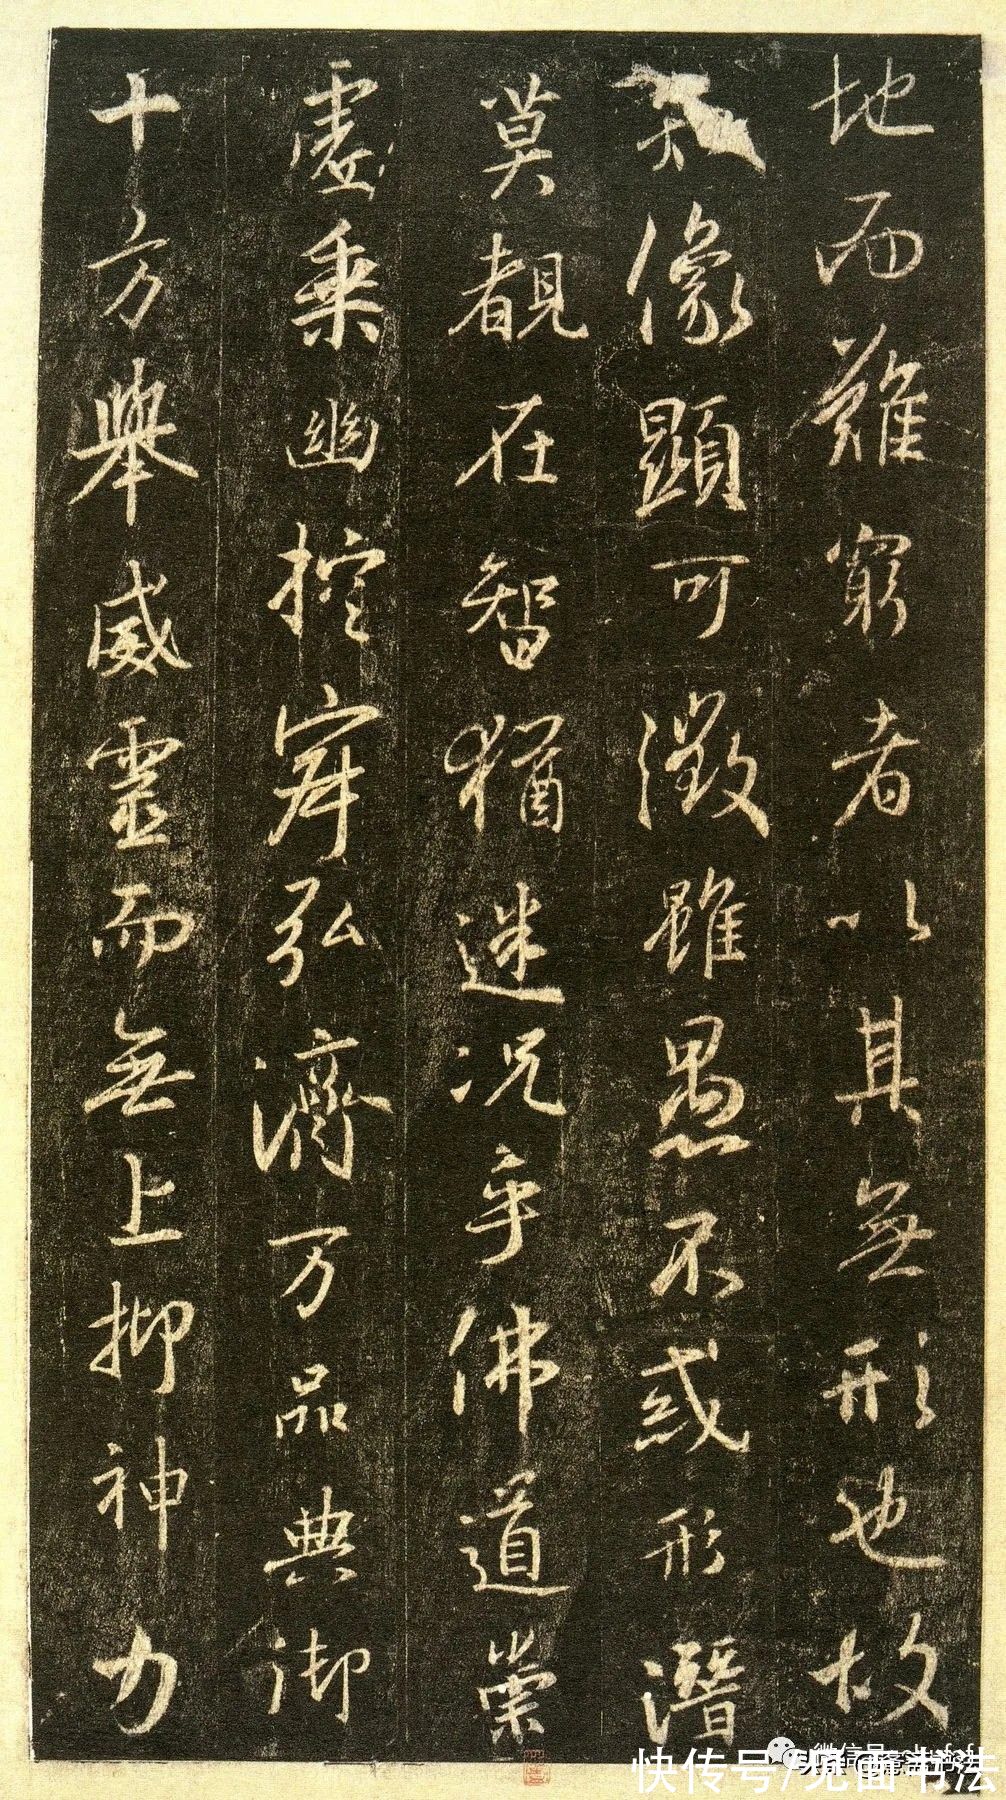 地而難窮者以其無形也故
知像顯可徵雖愚不惑形潛
莫覩在智猶迷況乎佛道崇
虛乘幽控寂弘濟万品典御
十方舉威靈而無上抑神力
微信号
快传号/见面书法